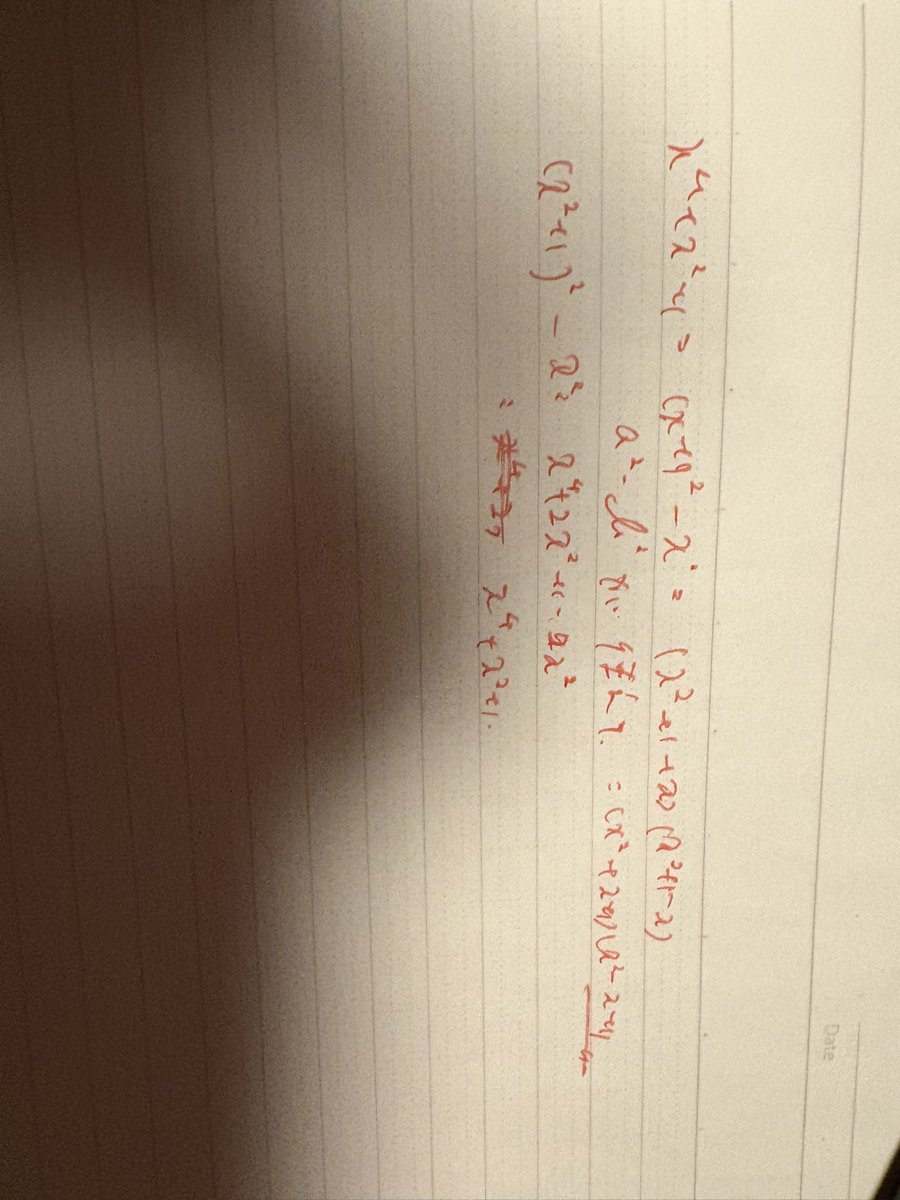 Date
x⁴+x²+1 = (x+1)² - x² = (x²+1+x)(x²+1-x)
a²-b² = (x²+x+1)(x²-x+1)
(x²+1)² - x² x⁴+2x²+1-x²
= x⁴+x²+1.